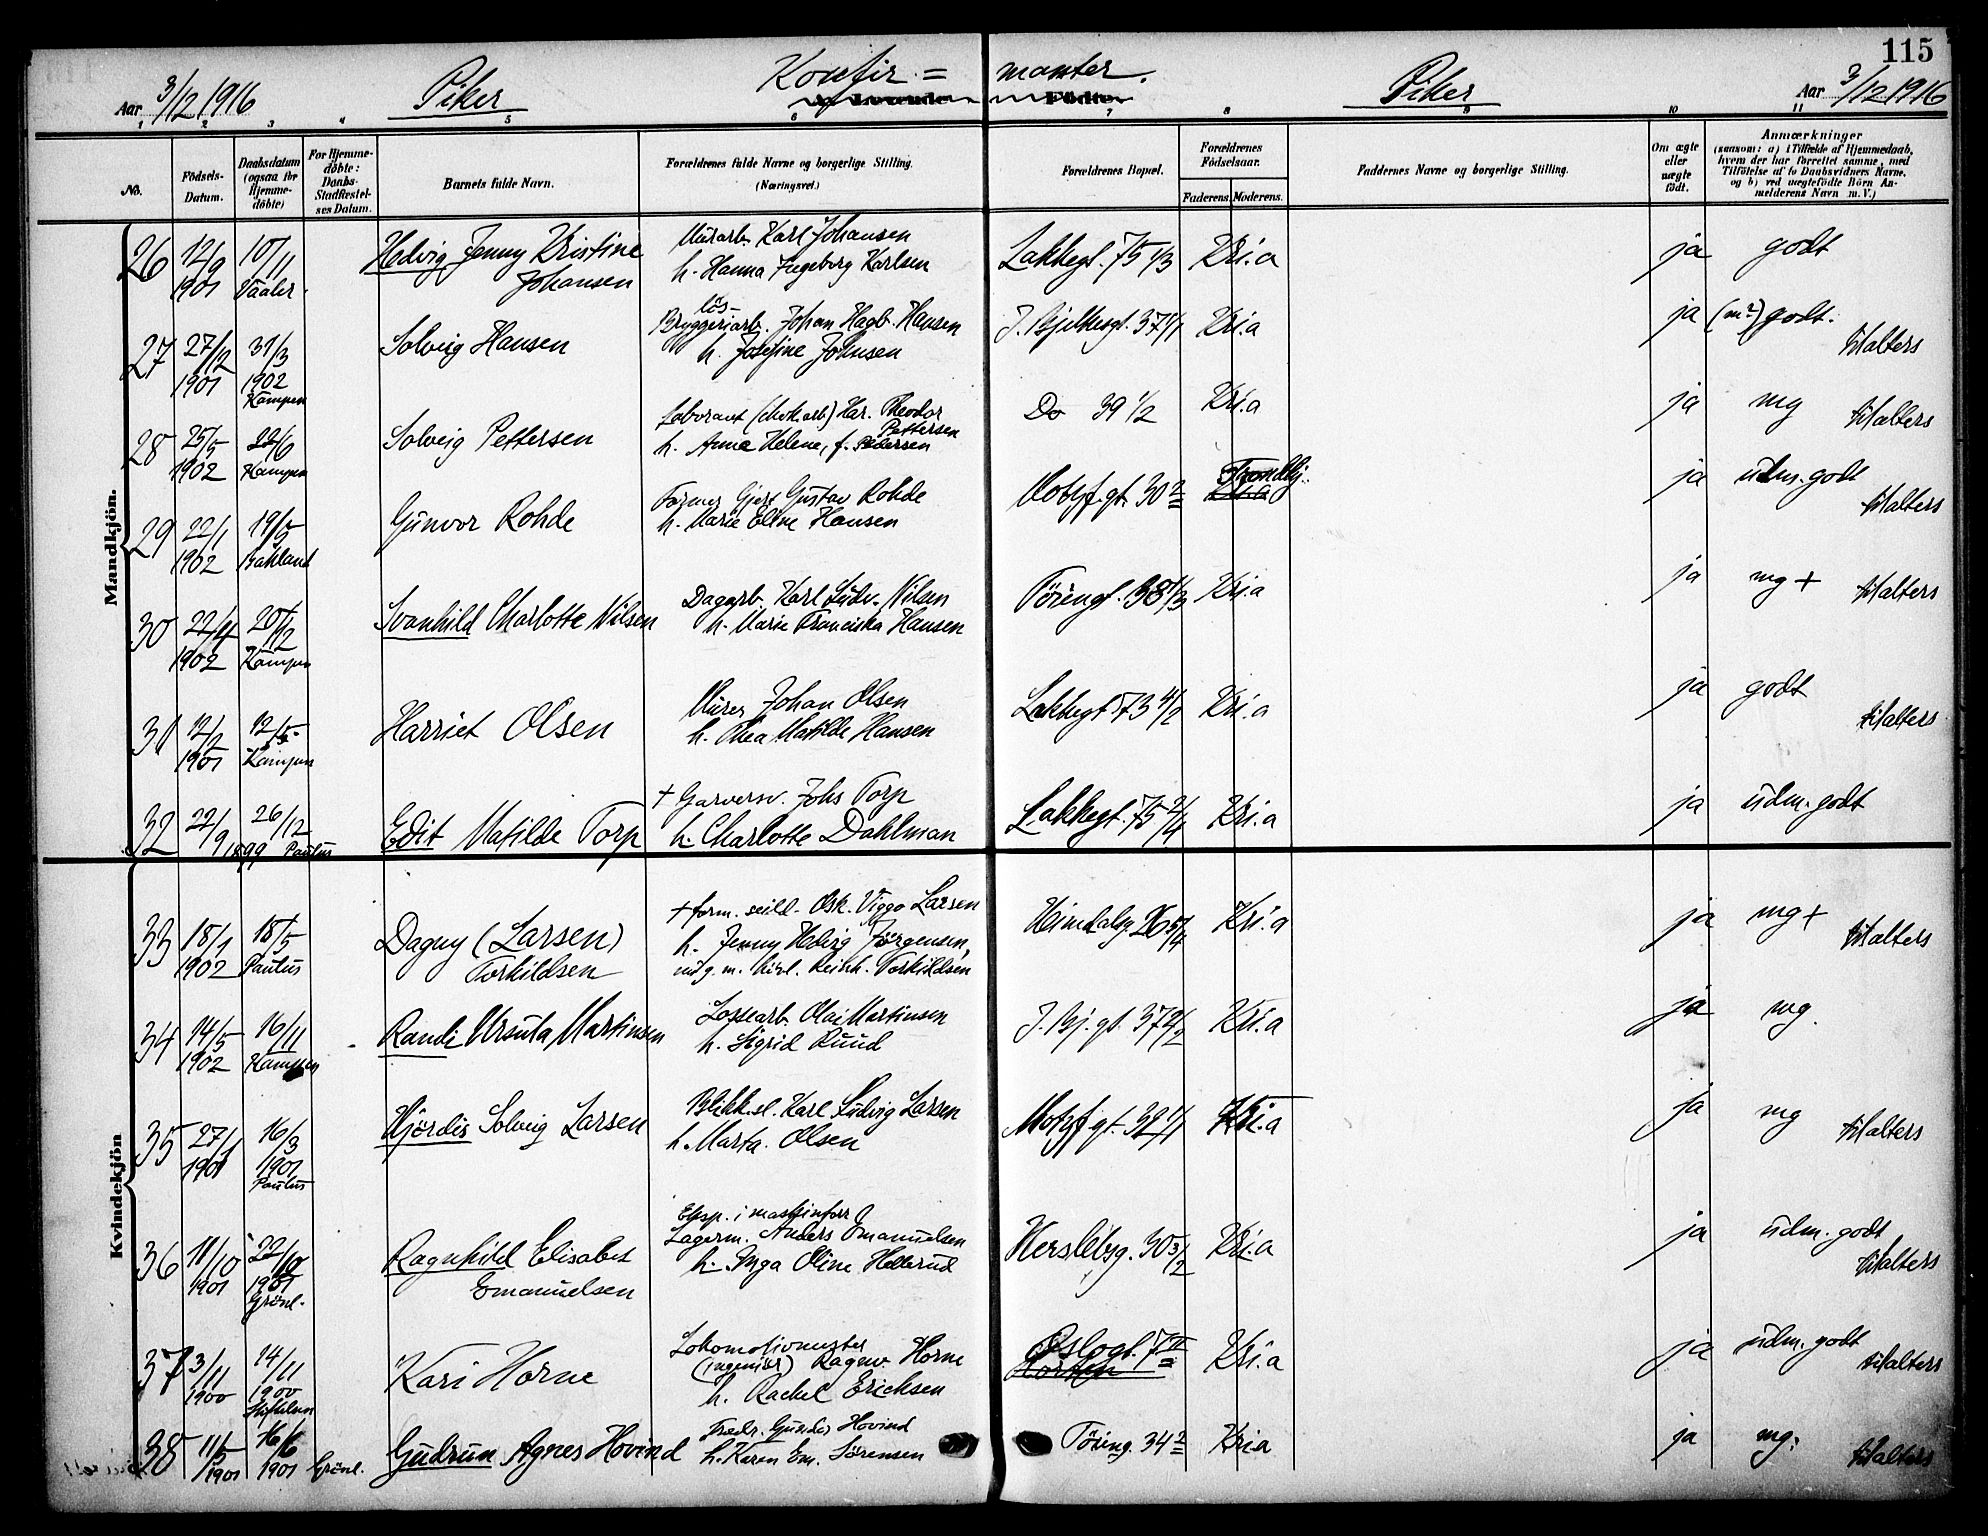 115
Konfir = manter.
Aar 3/12 1916 Piker Piker Aar 3/12 1916
Levende Födte
1 2 3 4 5 6 7 8 9 10 11
No. Födsels-Datum. Daabsdatum (ogsaa for Hjemme-döbte) For Hjemme-döbte: Daabs-Stadfæstel-ses Datum. Barnets fulde Navn. Forældrenes fulde Navne og borgerlige Stilling. (Næringsvei.) Forældrenes Bopæl. Forældrenes Födselsaar. Faderens. Moderens. Faddernes Navne og borgerlige Stilling. Om ægte eller uægte födt. Anmærkninger (saasom: a) i Tilfælde af Hjemmedaab, hvem der har forrettet samme, med Tilföielse af to Daabsvidners Navne, og b) ved uægtefödte Börn An-melderens Navn m. V.)
Mandkjön.
26 12/9 1901 10/11 Vaaler. Hedvig Jenny Kristine Johansen Murarb. Karl Johansen
h. Hanna Ingeborg Karlsen Lakkegt. 75 1/3 Kri.a ja godt
27 27/12 1901 31/3 1902 Kampen Solveig Hansen lös-
Bryggeriarb. Johan Hagb. Hansen
h. Josefine Johnsen J. Bjelkesgt. 37 1/1 Kri.a ja godt. til alters
28 25/5 1902 22/6 Kampen Solveig Pettersen Laborant (chok.arb) Har. Theodor Pettersen
h. Anna Helene, f. Pedersen Do 39 1/2 Kri.a ja mg til alters
29 22/1 1902 19/5 Bakland Gunvor Rohde Former Gjert Gustav Rohde
h. Marie Eline Hansen Motzf.gt. 30 2 Trondhj. Kri.a ja udm. godt til alters
30 22/4 1902 20/12 Kampen Svanhild Charlotte Nilsen Dagarb. Karl Ludv. Nilsen
h. Marie Franciska Hansen Töiengt. 38 1/3 Kri.a ja mg + til alters
31 12/2 1901 12/5 Kampen Harriet Olsen Murer Johan Olsen
h. Thea Matilde Hansen Lakkegt. 73 4/2 Kri.a ja godt til alters
32 22/9 1899 26/12 Paulus Edit Matilde Torp + Garversv. Johs Torp
h. Charlotte Dahlman Lakkegt. 75 2/4 Kri.a ja udm. godt
Kvindekjön
33 18/1 1902 18/5 Paulus Dagny (Larsen) Torkildsen + form. seild. Osk. Viggo Larsen
h. Jenny Hedvig Jörgensen,
nu g. m. Reinh. Torkildsen Heimdalsg. 26 5/4 Kri.a ja mg + til alters
34 14/5 1902 16/11 Kampen Randi Ursula Martinsen Lossearb. Olai Martinsen
h. Sigrid Ruud J. Bj. gt. 37 2/2 Kri.a ja mg.
35 27/1 1901 16/3 1901 Paulus Hjördis Solveig Larsen Blikksl. Karl Ludvig Larsen
h. Marta Olsen Motzf.gt. 32 1/1 Kri.a ja mg til alters
36 11/10 1901 22/10 1901 Grönl. Ragnhild Elisabet Emanuelsen Eksp. i maskinforr.
Lagerm. Anders Emanuelsen
h. Inga Oline Hellerud Herslebsg. 30 3/2 Kri.a ja udm. godt til alters
37 3/11 1900 14/11 1900 Kari Horne Lokomotivmester
(ingeniör) Ragnv. Horne
h. Rachel Ericksen Oslogt. 7 II Horten Kri.a ja udm. godt til alters
38 11/5 1901 16/6 1901 Grönl. Gudrun Agnes Hovind Fredr. Gunder Hovind
h. Karen Em. Sörensen Töieng. 34 2 Kri.a ja mg. til alters